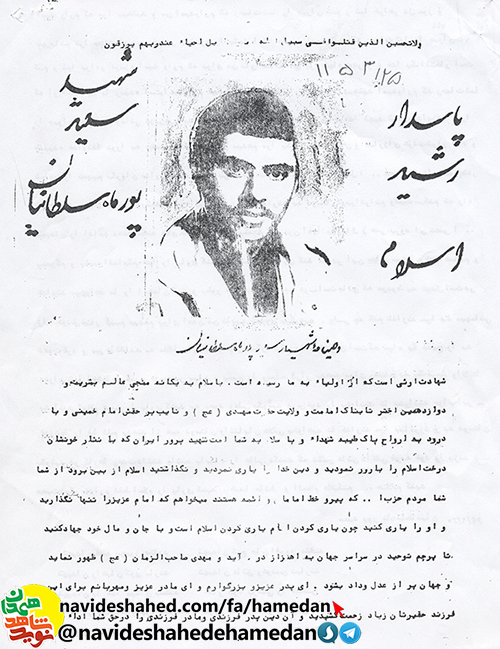 ولاتحسبن الذین قتلوا فی سبیل الله بل احیاء عندربهم یرزقون
۱۱۵۳۱۲۵
شهید
سعید
پورماه سلطانیان
پاسدار
رشید
اسلام
شهادت ارثی است که از اولیاء به ما رسیده است . با سلام به یگانه منجی عالم بشریت و
دوازدهمین اختر تابناک امامت و ولایت حضرت مهدی ( عج ) و نایب بر حقش امام خمینی و با
درود به ارواح پاک طیبه شهداء و با سلام به شما امت شهید پرور ایران که با نثار خونشان
درخت اسلام را بارور نمودید و دین خدا را یاری نمودید و نگذاشتید اسلام از بین برود از شما
شما مردم حزب ا . . که پیرو خط امام و ائمه هستند میخواهم که امام عزیز را تنها نگذارید
و او را یاری کنید چون یاری کردن امام یاری کردن اسلام است و با جان و مال خود جهاد کنید
تا پرچم توحید در سراسر جهان به اهتزاز در آید و مهدی صاحب الزمان ( عج ) ظهور نماید
و جهان پر از عدل و داد بشود . ای پدر عزیز و بزرگوارم و ای مادر عزیز و مهربانم برای این
فرزند حقیرتان زیاد زحمت کشیدید و آن دین پدر فرزندی و مادر فرزندی را در حق شما اداء
نوید شاهد همدان
navideshahed.com/fa/hamedan
@navideshahedehamedan